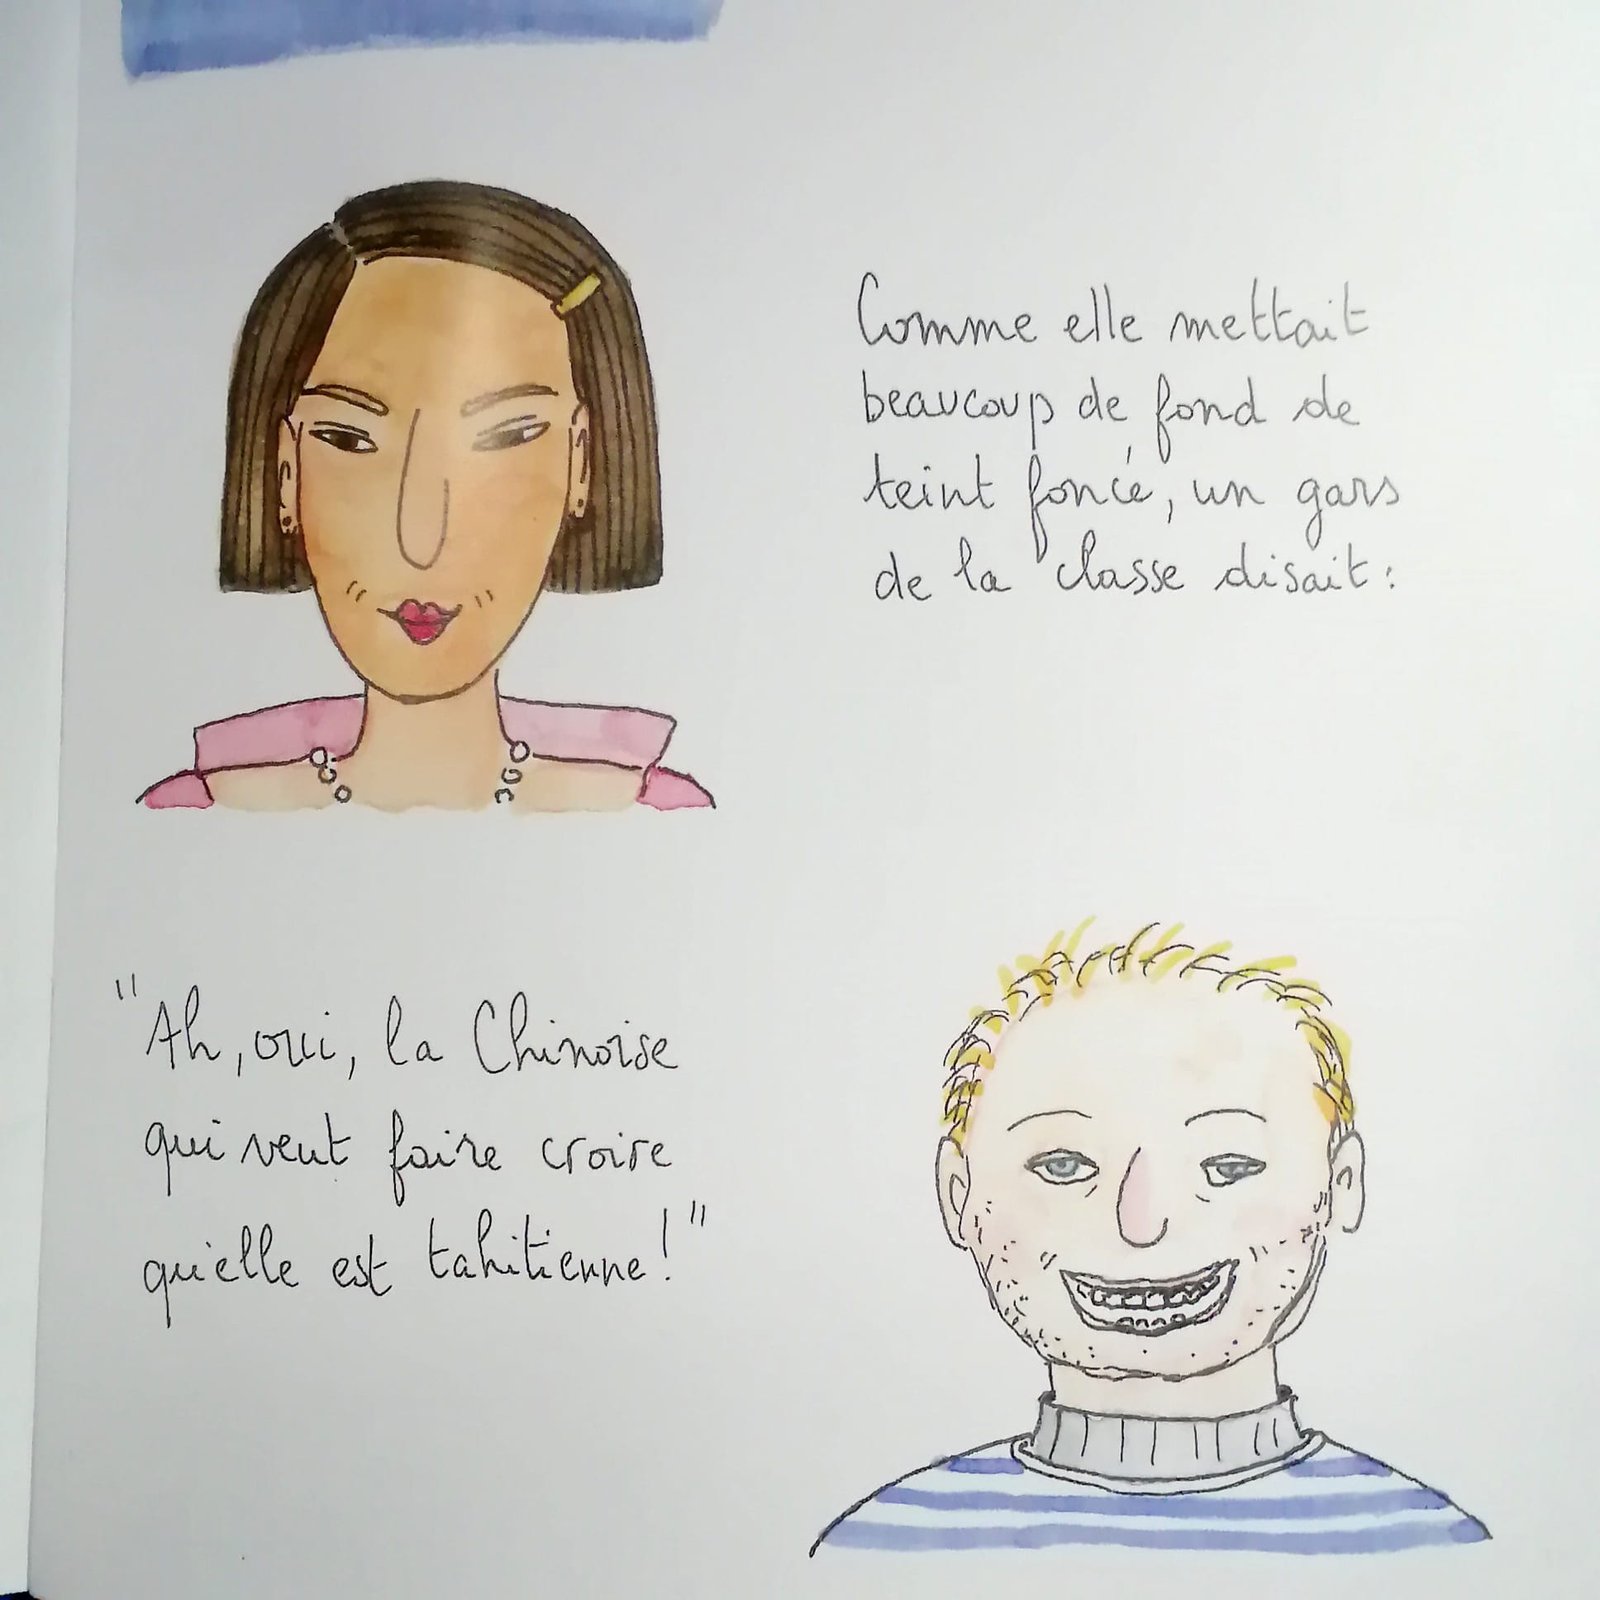 Comme elle mettait
beaucoup de fond de
teint foncé, un gars
de la classe disait :
"Ah, oui, la Chinoise
qui veut faire croire
qu'elle est tahitienne!"